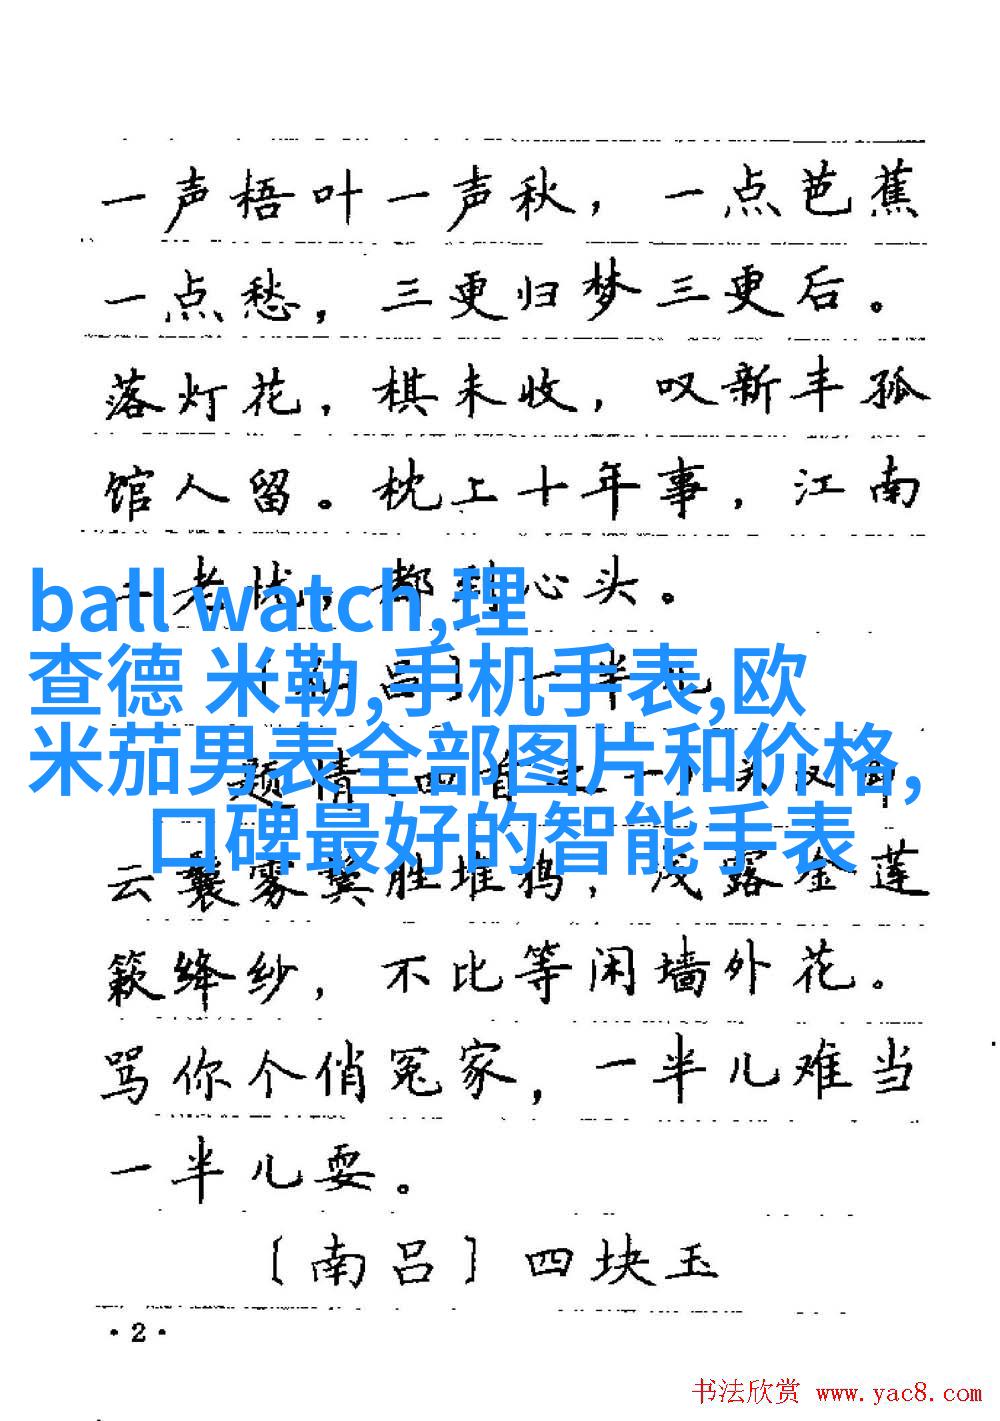 一声梧叶一声秋，一点芭蕉
一点愁，三更归梦三更后。
落灯花，棋未收，叹新丰孤
馆人留。枕上十年事，江南
二老忧，都到心头。
ball watch,理
查德 米勒,手机手表,欧
米茄男表全部图片和价格,
口碑最好的智能手表
〕一半儿
题情
云鬟雾鬓胜堆鸦，浅露金莲
簌绛纱，不比等闲墙外花。
骂你个俏冤家，一半儿难当
一半儿耍。
〔南吕〕四块玉
·2·
书法欣赏 www.yac8.com